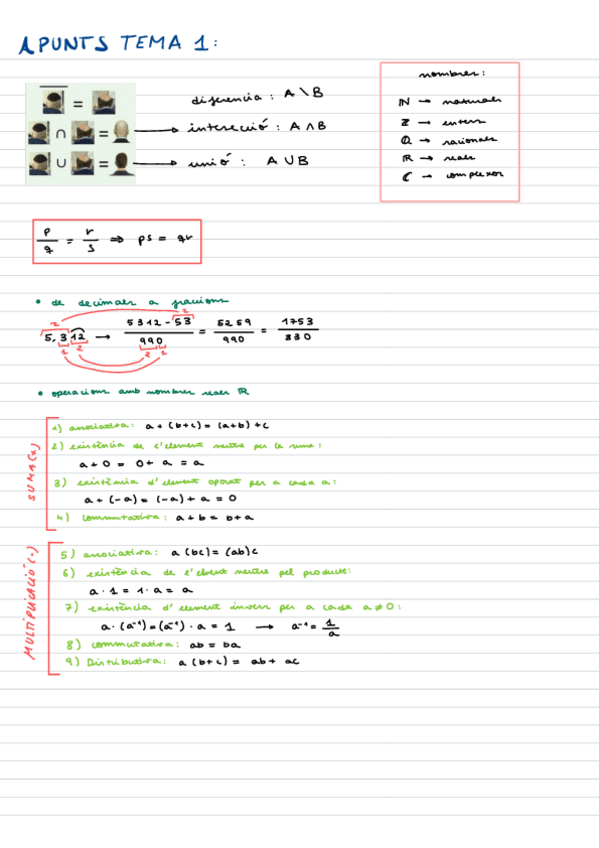 APUNTS TEMA 1:
=
diferencia: A \ B
∩ = → intersecció: A ∩ B
∪ = → unió: A ∪ B
nombres:
N → naturals
Z → enters
Q → racionals
R → reals
C → complexos
p/q = r/s ⇒ ps = qr
• de decimals a fraccions
2 2
5,312 → 5312-53/990 = 5259/990 = 1753/830
1 2 2 1
• operacions amb nombres reals R
SUMA (+)
1) associativa: a + (b+c) = (a+b) + c
2) existència de l'element neutre per la suma:
a + 0 = 0 + a = a
3) existència d'element oposat per a cada a:
a + (-a) = (-a) + a = 0
4) commutativa: a + b = b + a
MULTIPLICACIÓ (·)
5) associativa: a (bc) = (ab) c
6) existència de l'element neutre pel producte:
a · 1 = 1 · a = a
7) existència d'element invers per a cada a ≠ 0:
a · (a⁻¹) = (a⁻¹) · a = 1 → a⁻¹ = 1/a
8) commutativa: ab = ba
9) Distributiva: a (b+c) = ab + ac